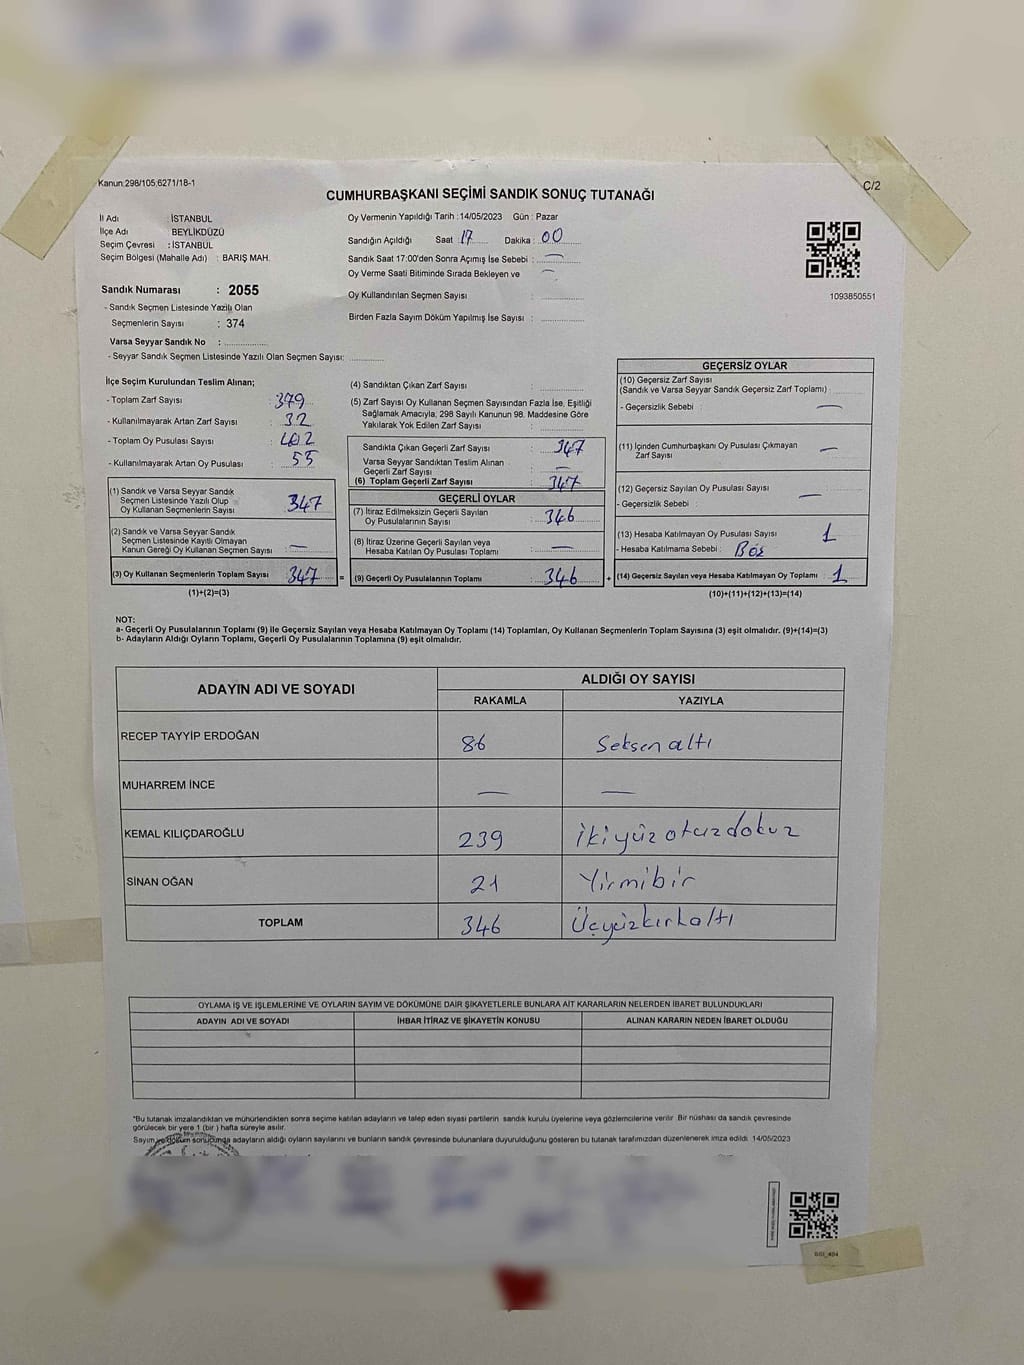 Kanun:298/105,6271/18-1
C/2
CUMHURBAŞKANI SEÇİMİ SANDIK SONUÇ TUTANAĞI
İl Adı : İSTANBUL
İlçe Adı : BEYLİKDÜZÜ
Seçim Çevresi : İSTANBUL
Seçim Bölgesi (Mahalle Adı) : BARIŞ MAH.
Sandık Numarası : 2055
- Sandık Seçmen Listesinde Yazılı Olan
Seçmenlerin Sayısı : 374
Varsa Seyyar Sandık No :
- Seyyar Sandık Seçmen Listesinde Yazılı Olan Seçmen Sayısı:
Oy Vermenin Yapıldığı Tarih :14/05/2023 Gün : Pazar
Sandığın Açıldığı Saat 17 Dakika : 00
Sandık Saat 17:00'den Sonra Açımış İse Sebebi : —
Oy Verme Saati Bitiminde Sırada Bekleyen ve —
Oy Kullandırılan Seçmen Sayısı :
Birden Fazla Sayım Döküm Yapılmış İse Sayısı :
1093850551
İlçe Seçim Kurulundan Teslim Alınan;
- Toplam Zarf Sayısı : 379
- Kullanılmayarak Artan Zarf Sayısı : 32
- Toplam Oy Pusulası Sayısı : 402
- Kullanılmayarak Artan Oy Pusulası : 55
(1) Sandık ve Varsa Seyyar Sandık
Seçmen Listesinde Yazılı Olup
Oy Kullanan Seçmenlerin Sayısı : 347
(2) Sandık ve Varsa Seyyar Sandık
Seçmen Listesinde Kayıtlı Olmayan
Kanun Gereği Oy Kullanan Seçmen Sayısı : —
(3) Oy Kullanan Seçmenlerin Toplam Sayısı : 347 =
(1)+(2)=(3)
(4) Sandıktan Çıkan Zarf Sayısı :
(5) Zarf Sayısı Oy Kullanan Seçmen Sayısından Fazla İse, Eşitliği
Sağlamak Amacıyla, 298 Sayılı Kanunun 98. Maddesine Göre
Yakılarak Yok Edilen Zarf Sayısı :
Sandıkta Çıkan Geçerli Zarf Sayısı : 347
Varsa Seyyar Sandıktan Teslim Alınan
Geçerli Zarf Sayısı : —
(6) Toplam Geçerli Zarf Sayısı : 347
GEÇERLİ OYLAR
(7) İtiraz Edilmeksizin Geçerli Sayılan
Oy Pusulalarının Sayısı : 346
(8) İtiraz Üzerine Geçerli Sayılan veya
Hesaba Katılan Oy Pusulası Toplamı : —
(9) Geçerli Oy Pusulalarının Toplamı : 346 +
GEÇERSİZ OYLAR
(10) Geçersiz Zarf Sayısı
(Sandık ve Varsa Seyyar Sandık Geçersiz Zarf Toplamı) :
- Geçersizlik Sebebi : —
(11) İçinden Cumhurbaşkanı Oy Pusulası Çıkmayan
Zarf Sayısı : —
(12) Geçersiz Sayılan Oy Pusulası Sayısı : —
- Geçersizlik Sebebi :
(13) Hesaba Katılmayan Oy Sayısı : 1
- Hesaba Katılmama Sebebi : Boş
(14) Geçersiz Sayılan veya Hesaba Katılmayan Oy Toplamı : 1
(10)+(11)+(12)+(13)=(14)
NOT:
a- Geçerli Oy Pusulalarının Toplamı (9) ile Geçersiz Sayılan veya Hesaba Katılmayan Oy Toplamı (14) Toplamları, Oy Kullanan Seçmenlerin Toplam Sayısına (3) eşit olmalıdır. (9)+(14)=(3)
b- Adayların Aldığı Oyların Toplamı, Geçerli Oy Pusulalarının Toplamına (9) eşit olmalıdır.
ADAYIN ADI VE SOYADI ALDIĞI OY SAYISI
RAKAMLA YAZIYLA
RECEP TAYYİP ERDOĞAN 86 Seksen altı
MUHARREM İNCE — —
KEMAL KILIÇDAROĞLU 239 İkiyüz otuzdokuz
SİNAN OĞAN 21 Yirmibir
TOPLAM 346 Üçyüzkırkaltı
OYLAMA İŞ VE İŞLEMLERİNE VE OYLARIN SAYIM VE DÖKÜMÜNE DAİR ŞİKAYETLERLE BUNLARA AİT KARARLARIN NELERDEN İBARET BULUNDUKLARI
ADAYIN ADI VE SOYADI İHBAR İTİRAZ VE ŞİKAYETİN KONUSU ALINAN KARARIN NEDEN İBARET OLDUĞU
*Bu tutanak imzalandıktan ve mühürlendikten sonra seçime katılan adayların ve talep eden siyasi partilerin sandık kurulu üyelerine veya gözlemcilerine verilir. Bir nüshası da sandık çevresinde
görülecek bir yere 1 (bir ) hafta süreyle asılır.
Sayım ve döküm sonucunda adayların aldığı oyların sayılarını ve bunların sandık çevresinde bulunanlara duyurulduğunu gösteren bu tutanak tarafımızdan düzenlenerek imza edildi. 14/05/2023